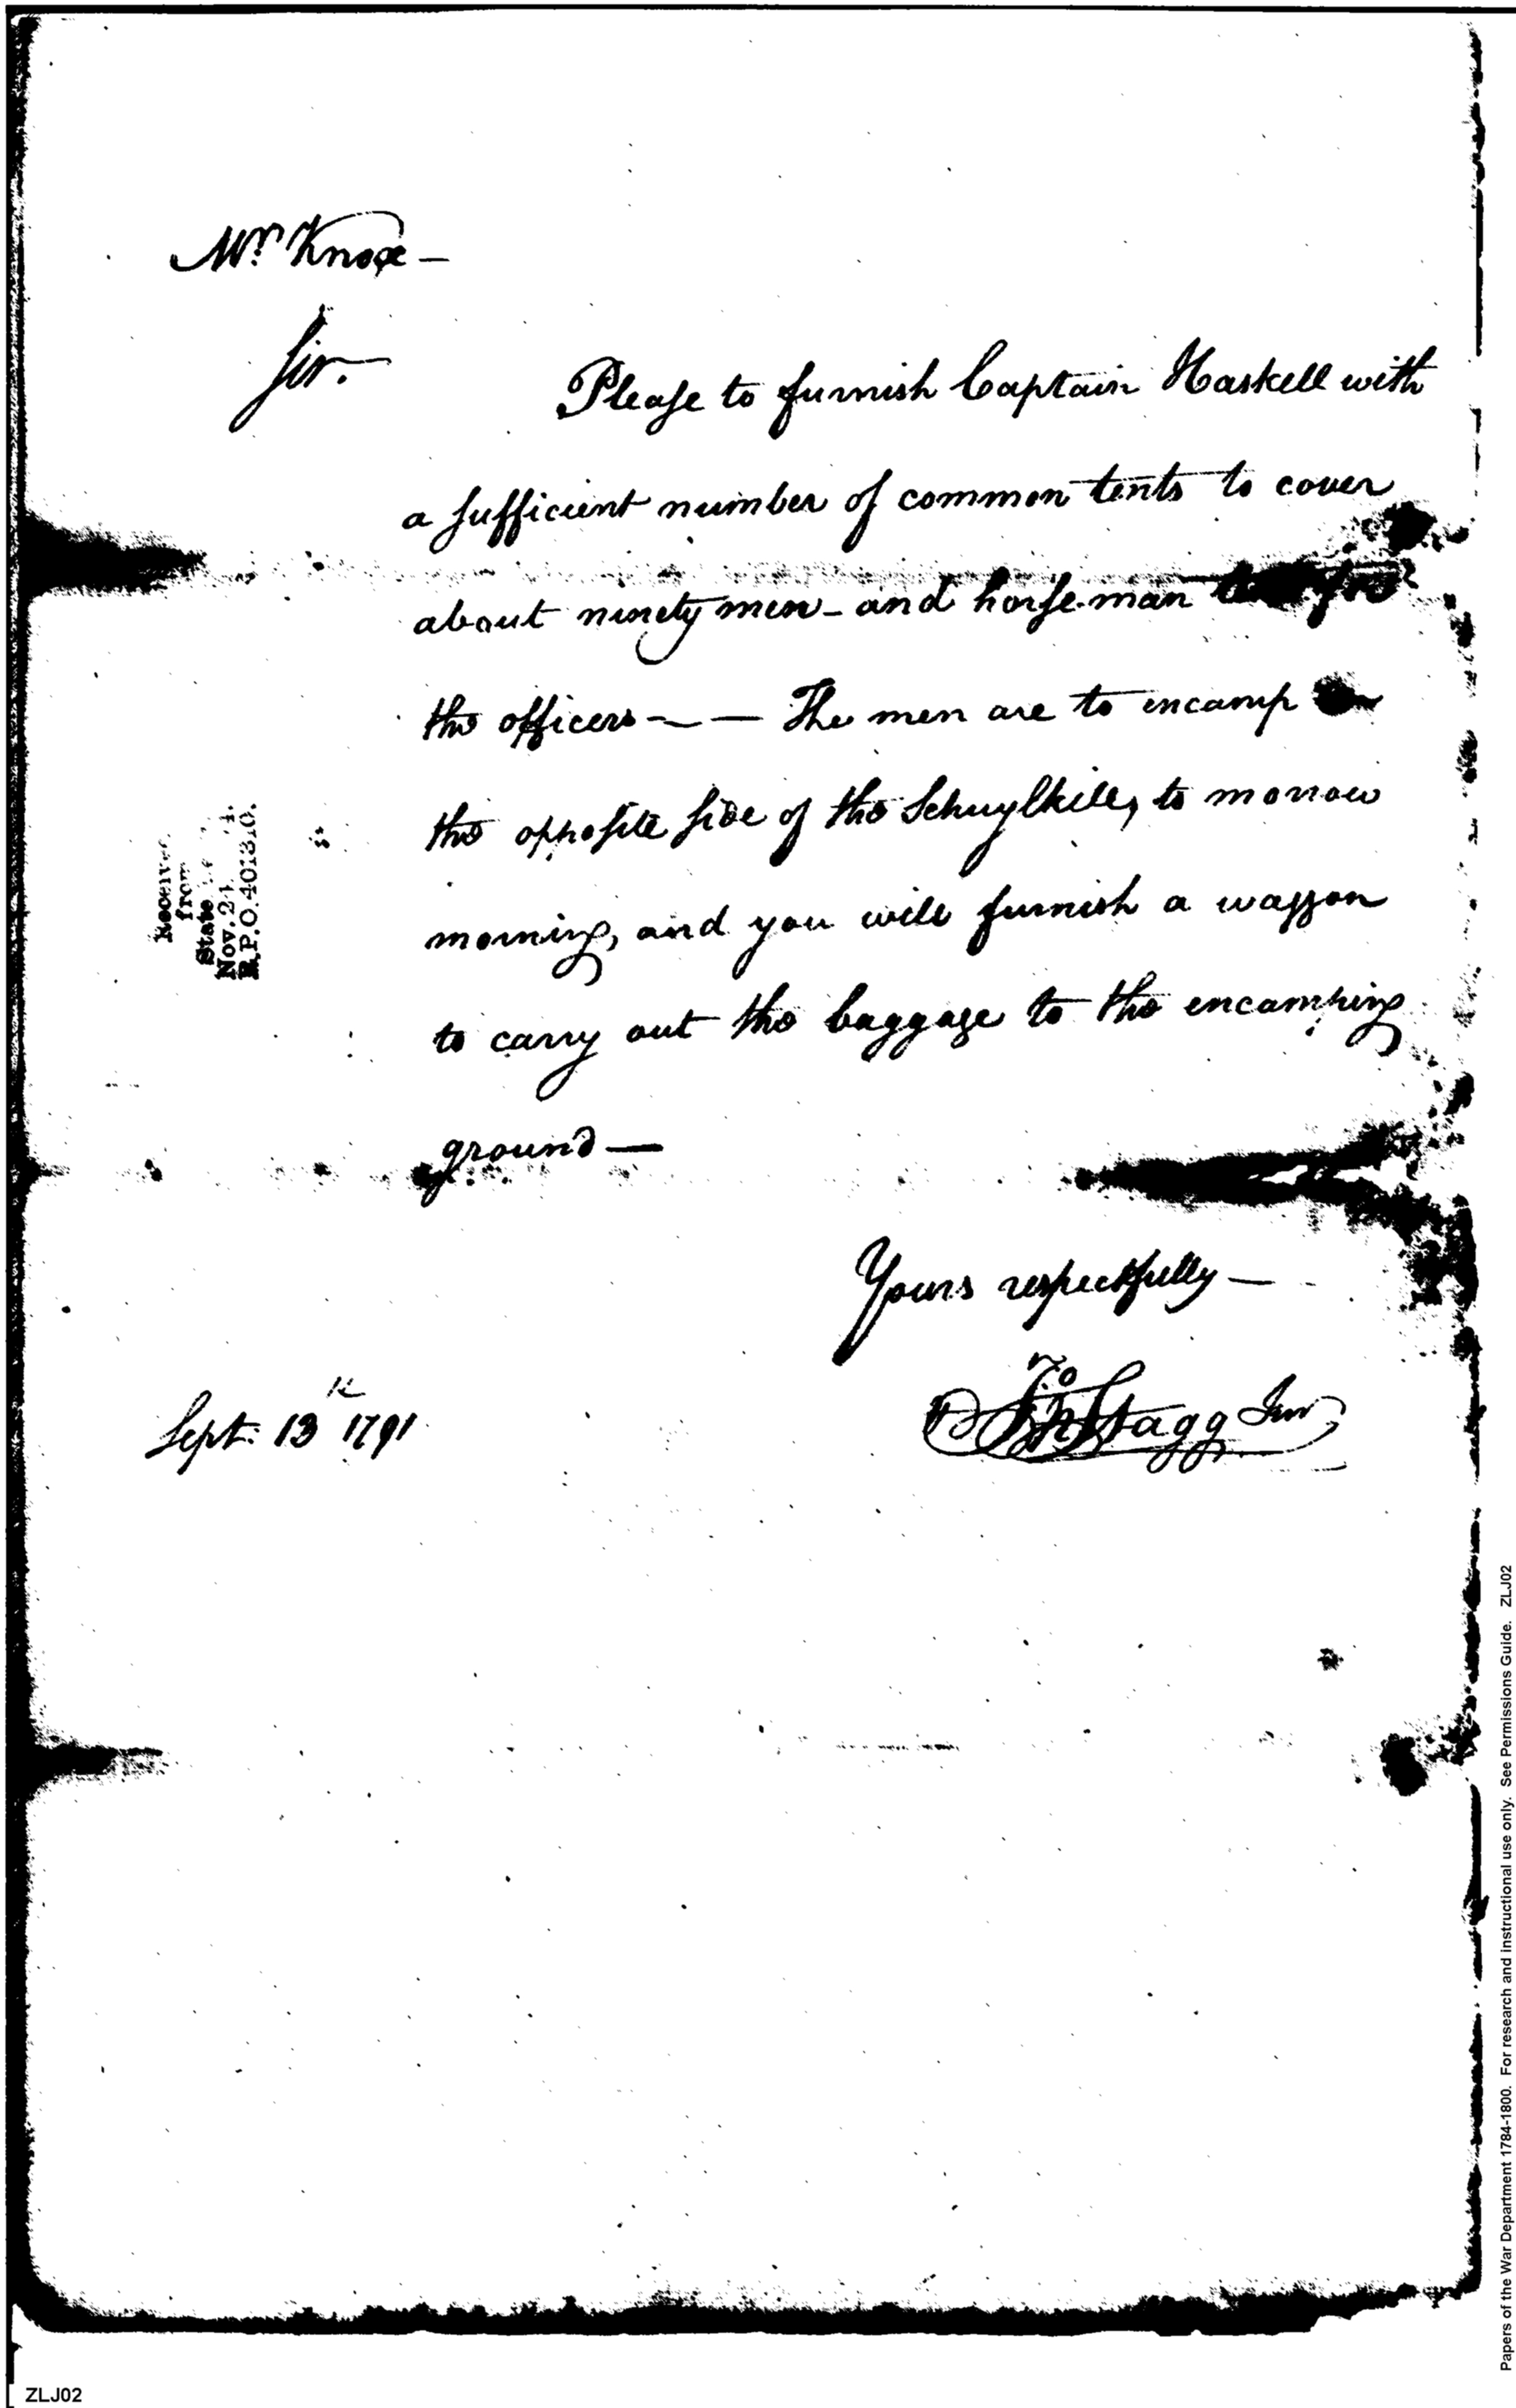 Mr. Knox —
Sir.
Please to furnish Captain Haskell with
a sufficient number of common tents to cover
about ninety men - and horseman for
the officers — The men are to encamp
the opposite side of the Schuylkill, to morrow
morning, and you will furnish a waggon
to carry out the baggage to the encamping
ground —
Yours respectfully —
Jno Stagg Junr
Sept. 13th 1791
Received
from
State
Nov. 21
R.P.O. 401310.
Papers of the War Department 1784-1800. For research and instructional use only. See Permissions Guide. ZLJ02
ZLJ02